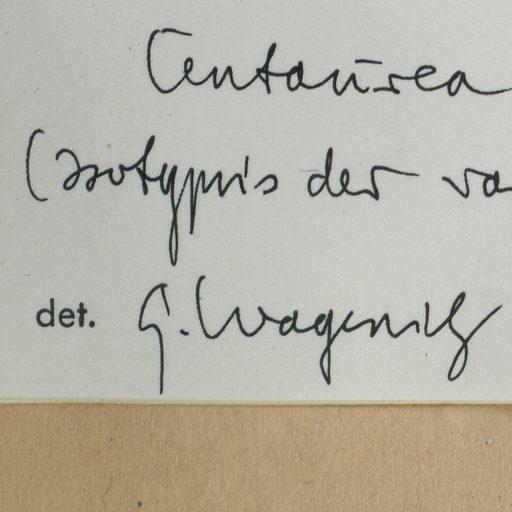 Centaurea
(Isotypus der va
det. G. Wagenitz